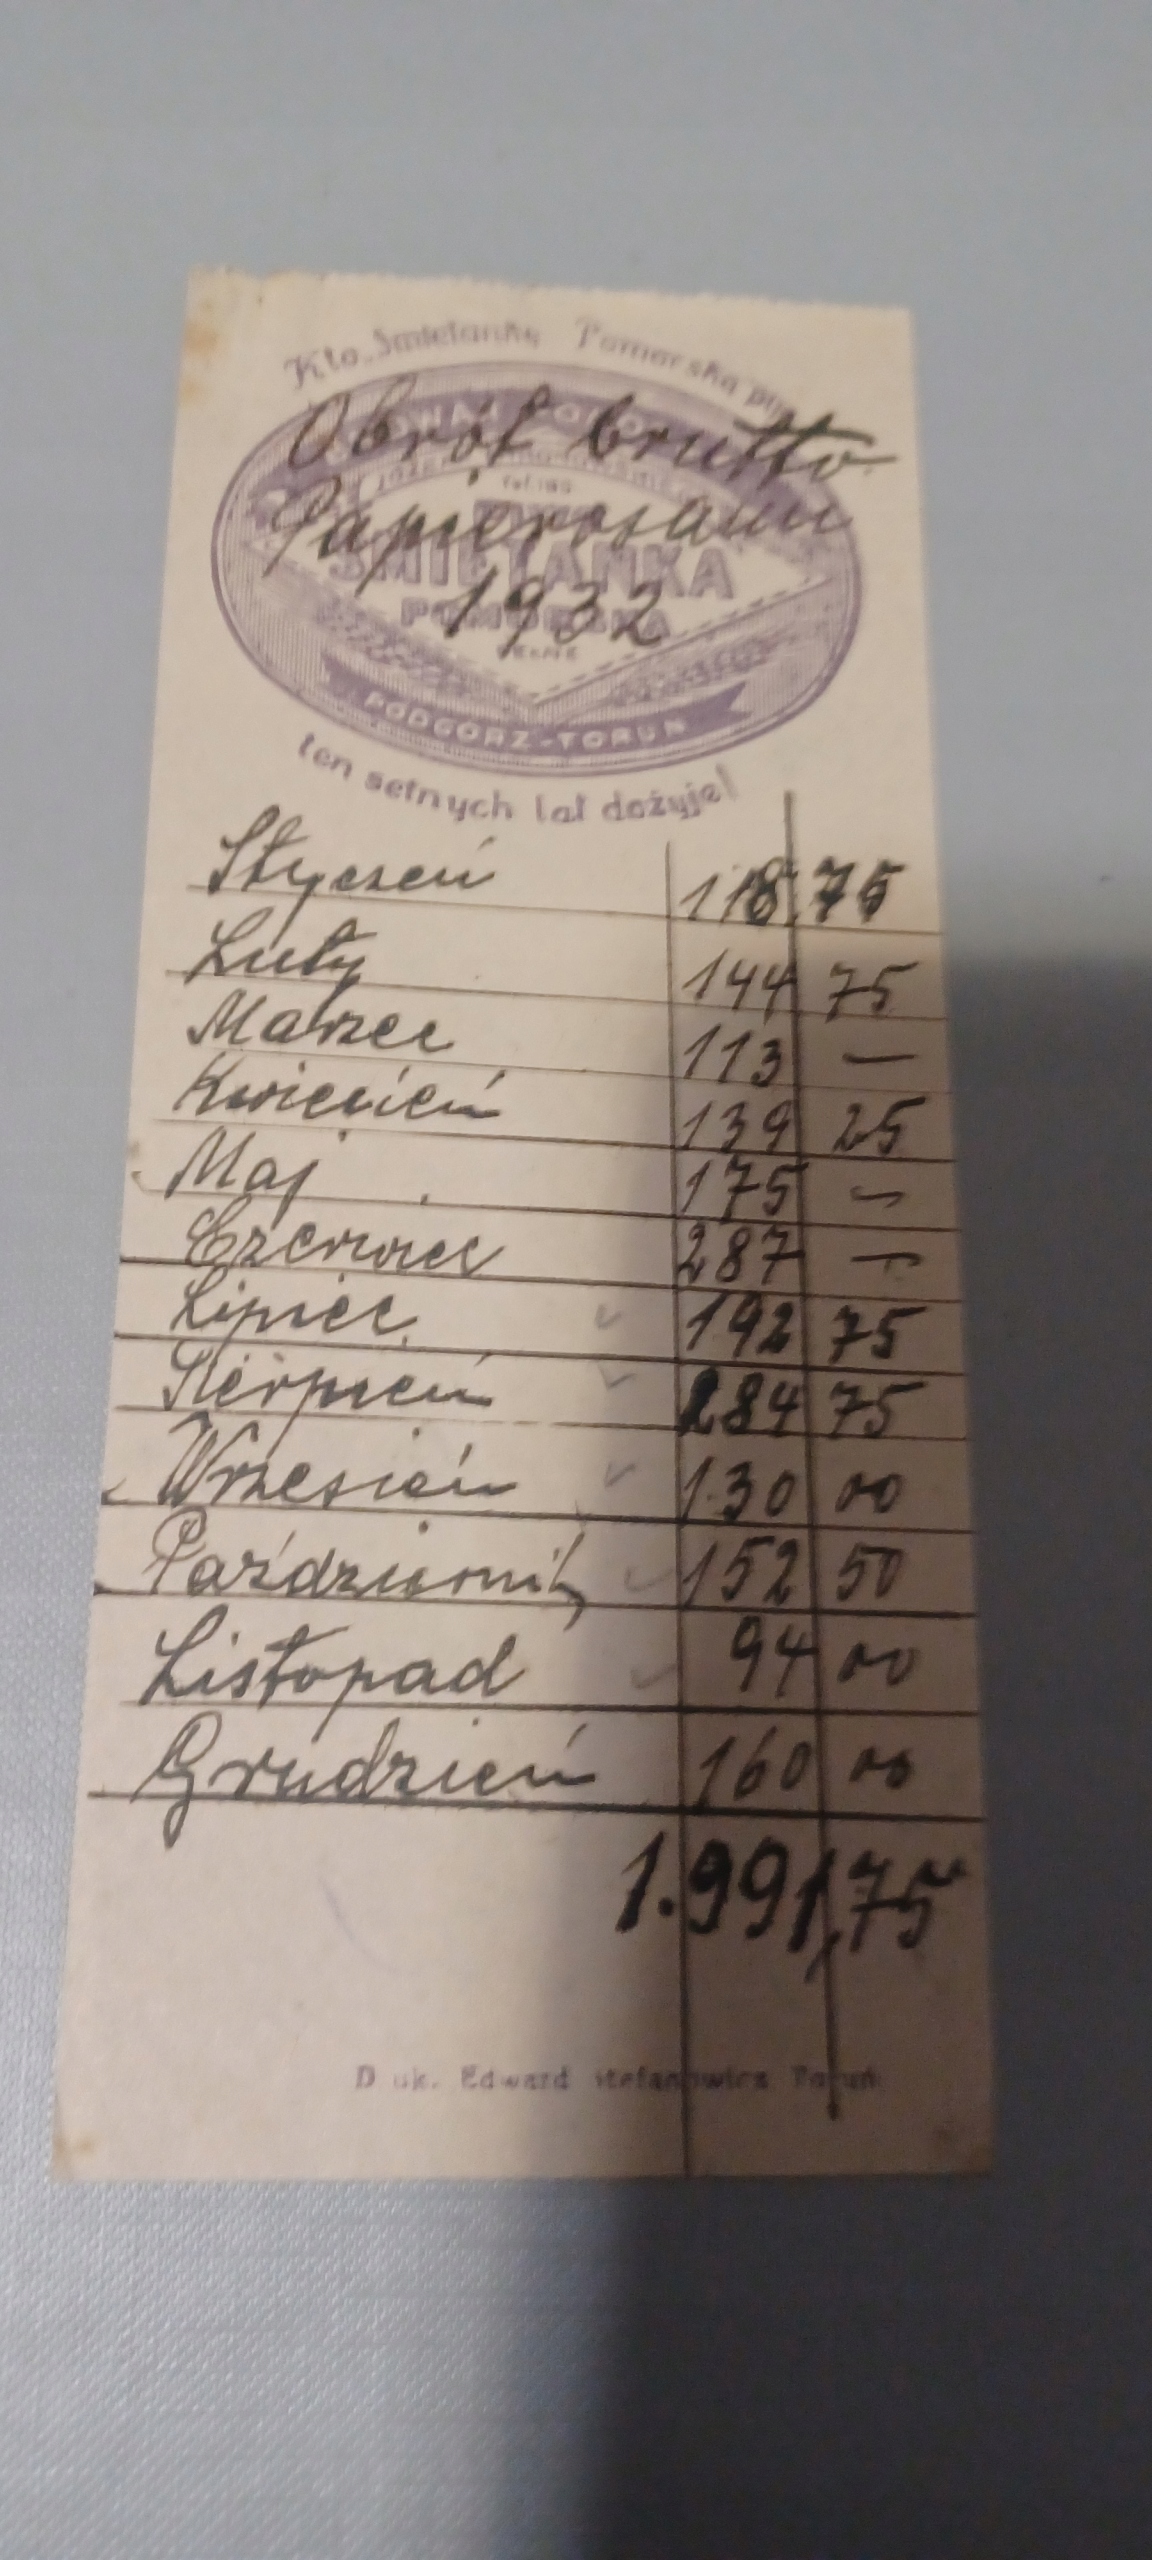 Kto Śmietankę Pomorską pije
Obrót brutto
Papierosami
1932
Tel. 195
ŚMIETANKA
POMORSKA
PODGÓRZ-TORUŃ
ten setnych lat dożyje!
Styczeń 118 75
Luty 144 75
Marzec 113 —
Kwiecień 139 25
Maj 175 —
Czerwiec 287 —
Lipiec 192 75
Sierpień 284 75
Wrzesień 130 00
Październik 152 50
Listopad 94 00
Grudzień 160 00
1.991,75
Druk. Edward Stefanowicz Toruń